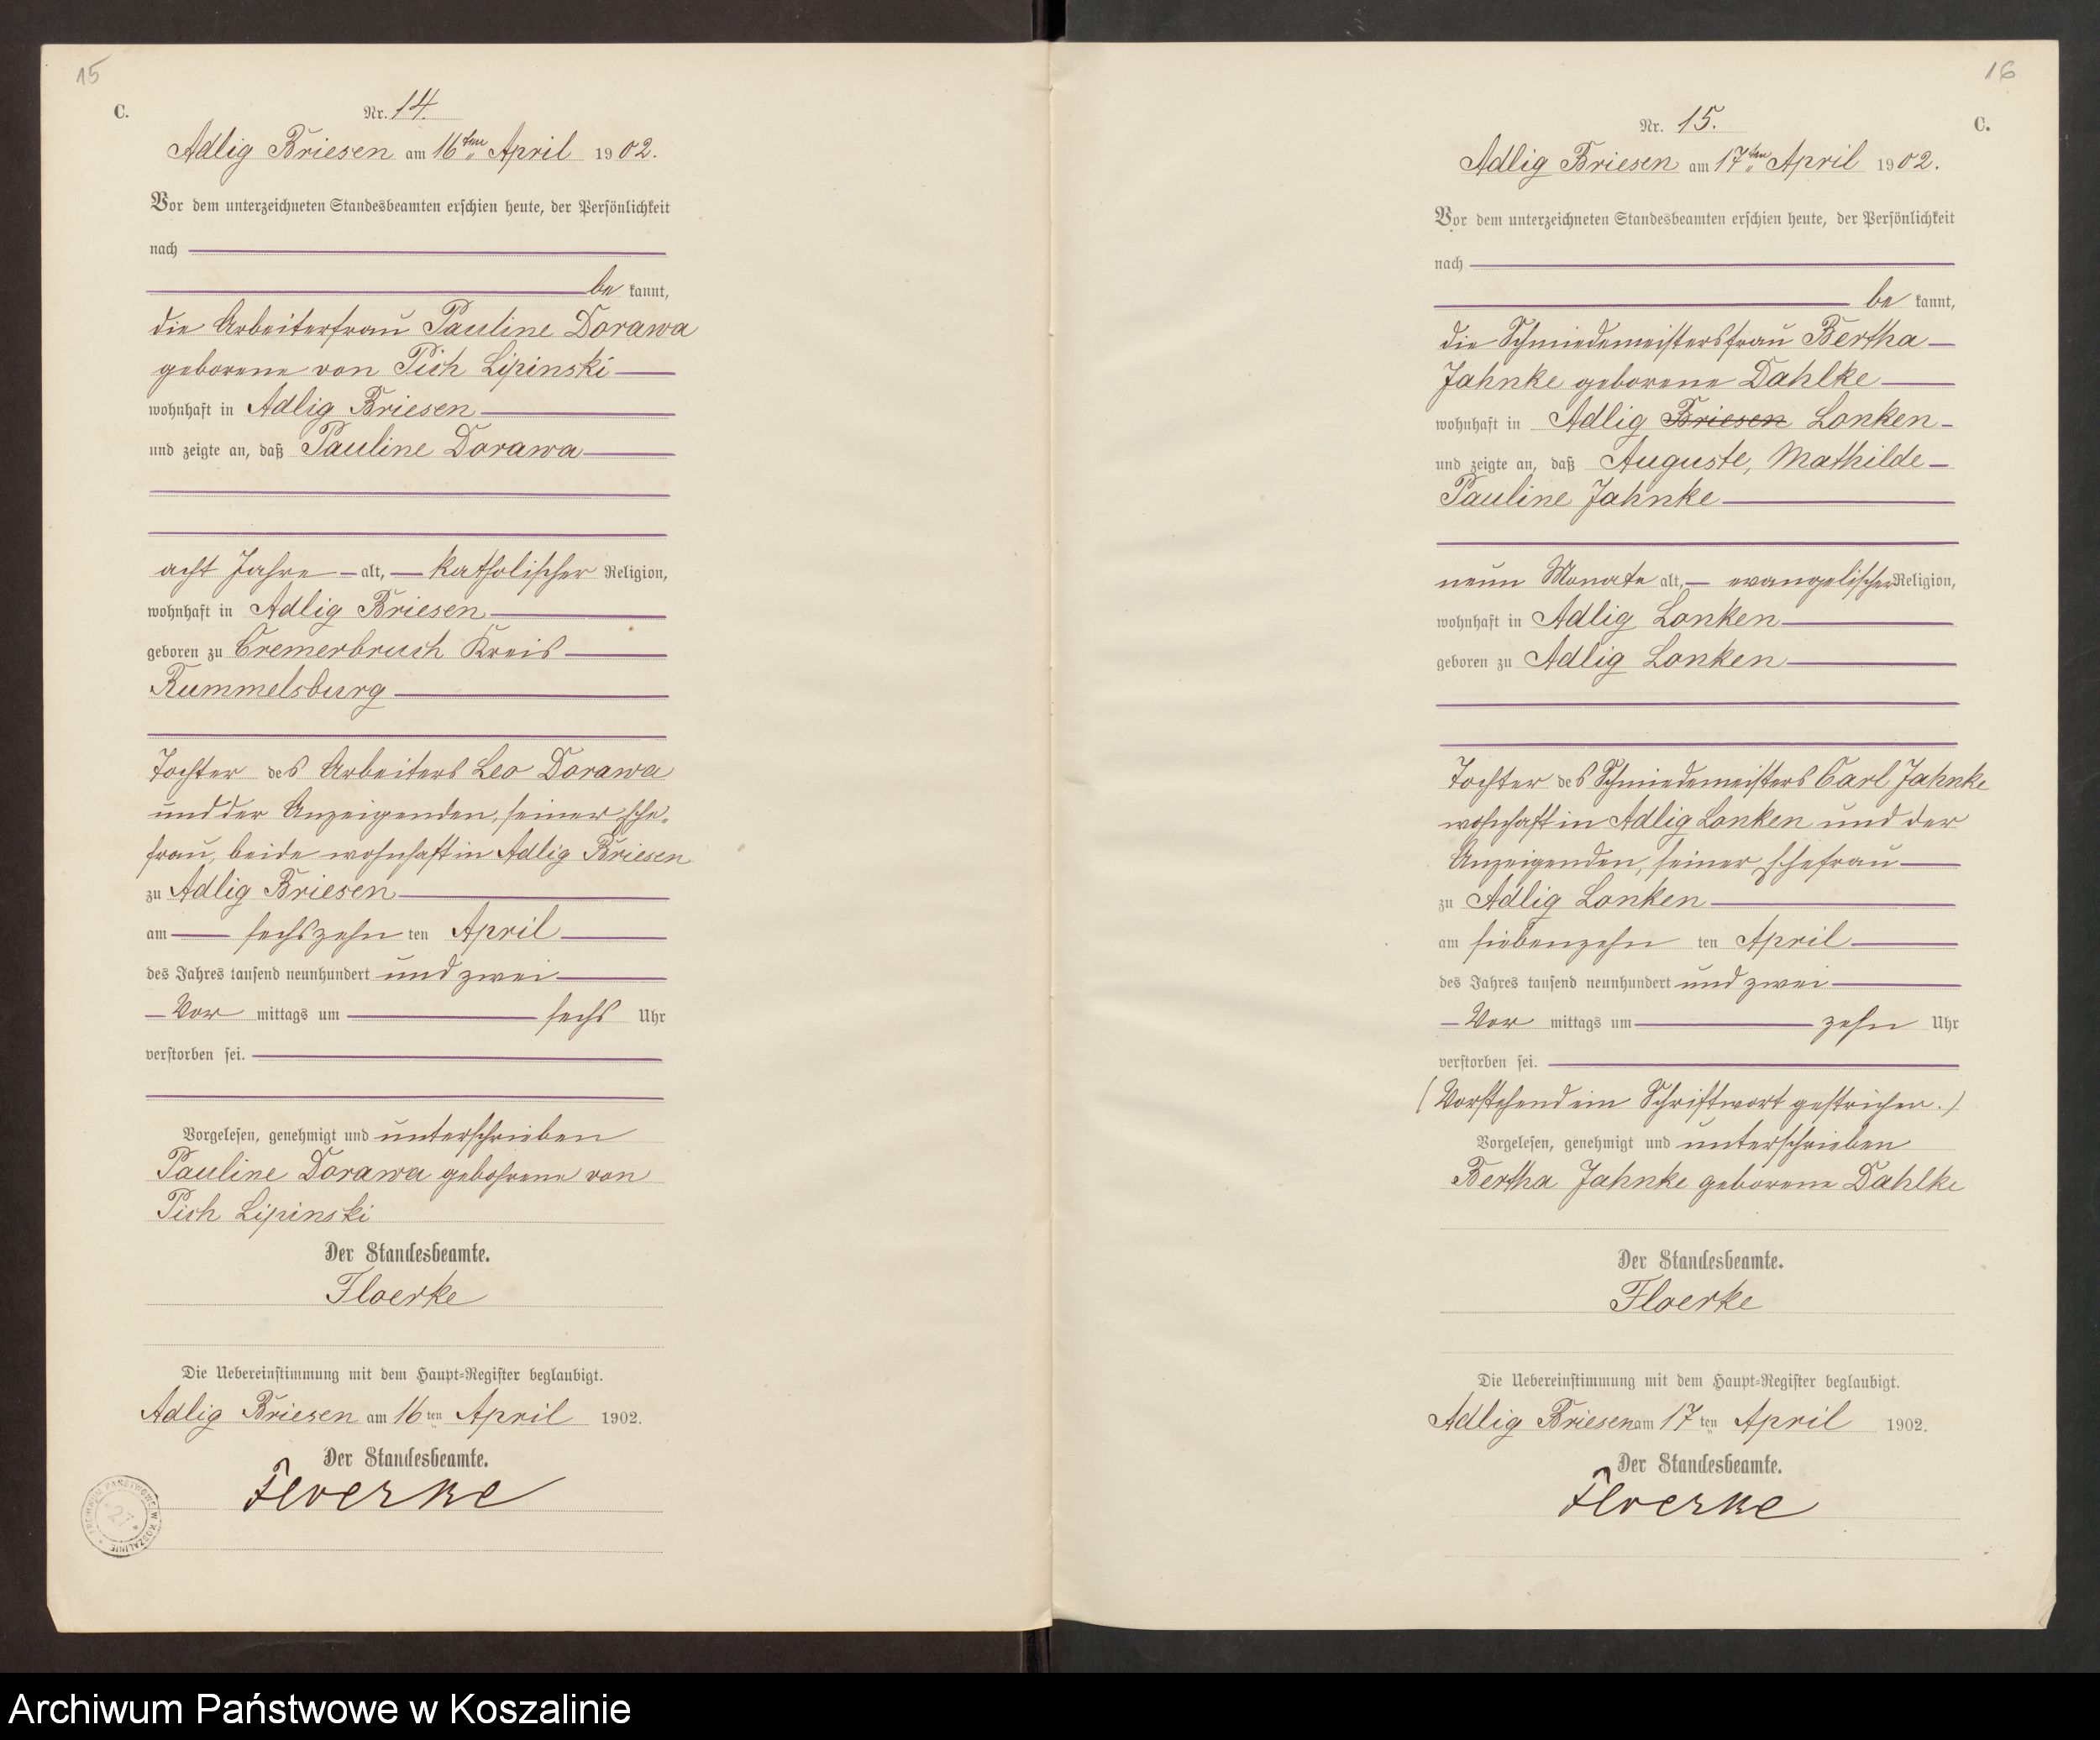 15
C.
Nr. 14.
Adlig Briesen am 16ten April 1902.
Vor dem unterzeichneten Standesbeamten erschien heute, der Persönlichkeit
nach
be kannt,
die Arbeiterfrau Pauline Dorawa
geborene von Pich Lipinski
wohnhaft in Adlig Briesen
und zeigte an, daß Pauline Dorawa
acht Jahre alt, katholischer Religion,
wohnhaft in Adlig Briesen
geboren zu Cremerbruch Kreis
Rummelsburg
Tochter des Arbeiters Leo Dorawa
und der Anzeigenden, seiner Ehe-
frau, beide wohnhaft in Adlig Briesen
zu Adlig Briesen
am sechszehn ten April
des Jahres tausend neunhundert und zwei
Vor mittags um sechs Uhr
verstorben sei.
Vorgelesen, genehmigt und unterschrieben
Pauline Dorawa gebohrene von
Pich Lipinski
Der Standesbeamte.
Floerke
Die Uebereinstimmung mit dem Haupt-Register beglaubigt.
Adlig Briesen am 16ten April 1902.
Der Standesbeamte.
Floerke
ARCHIWUM PAŃSTWOWE W KOSZALINIE
27
16
C.
Nr. 15.
Adlig Briesen am 17ten April 1902.
Vor dem unterzeichneten Standesbeamten erschien heute, der Persönlichkeit
nach
be kannt,
die Schmiedemeistersfrau Bertha
Jahnke geborene Dahlke
wohnhaft in Adlig Briesen Lonken
und zeigte an, daß Auguste, Mathilde
Pauline Jahnke
neun Monate alt, evangelischer Religion,
wohnhaft in Adlig Lonken
geboren zu Adlig Lonken
Tochter des Schmiedemeisters Carl Jahnke
wohnhaft in Adlig Lonken und der
Anzeigenden, seiner Ehefrau
zu Adlig Lonken
am siebenzehn ten April
des Jahres tausend neunhundert und zwei
Vor mittags um zehn Uhr
verstorben sei.
(Vorstehend ein Schriftwort gestrichen.)
Vorgelesen, genehmigt und unterschrieben
Bertha Jahnke geborene Dahlke
Der Standesbeamte.
Floerke
Die Uebereinstimmung mit dem Haupt-Register beglaubigt.
Adlig Briesen am 17ten April 1902.
Der Standesbeamte.
Floerke
Archiwum Państwowe w Koszalinie